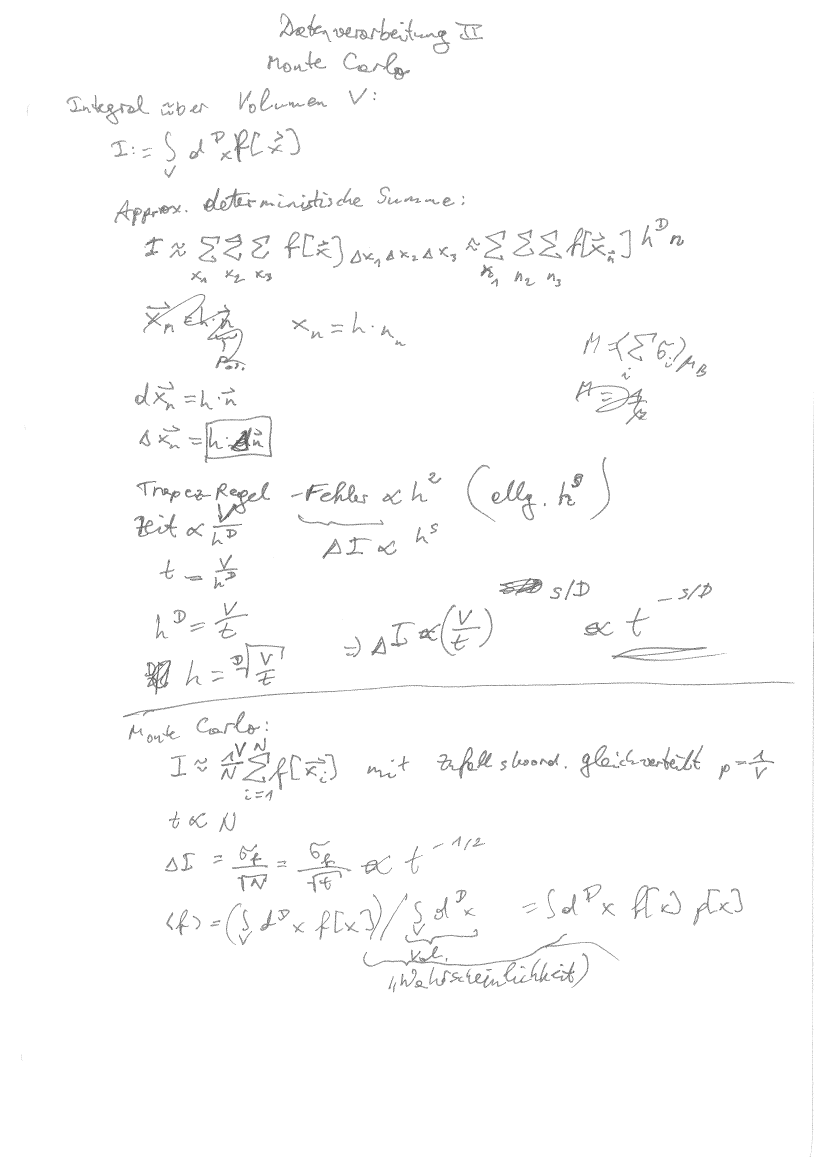 Datenverarbeitung II
Monte Carlo
Integral über Volumen V:
I := ∫_V d^D x f[x⃗]
Approx. deterministische Summe:
I ≈ Σ_{x₁} Σ_{x₂} Σ_{x₃} f[x⃗] Δx₁ Δx₂ Δx₃ ≈ Σ_{n₁} Σ_{n₂} Σ_{n₃} f[x⃗_n⃗] h^D n
x_n = h · n_n
M = ⟨Σ_i σ_i⟩ μ_B
dx⃗_n = h · n⃗
Δx⃗_n = h · Δn⃗
Trapez-Regel - Fehler ∝ h² (allg. h^s)
Zeit ∝ V/h^D
ΔI ∝ h^s
t = V/h^D
h^D = V/t
⇒ ΔI ∝ (V/t)^{s/D} ∝ t^{-s/D}
h = ᴰ√(V/t)
Monte Carlo:
I ≈ 1/N V Σ_{i=1}^N f[x⃗_i] mit Zufallskoord. gleichverteilt p = 1/V
t ∝ N
ΔI = σ_f/√N = σ_f/√t ∝ t^{-1/2}
⟨f⟩ = (∫_V d^D x f[x]) / ∫_V d^D x = ∫ d^D x f[x] p[x]
Vol.
„Wahrscheinlichkeit)